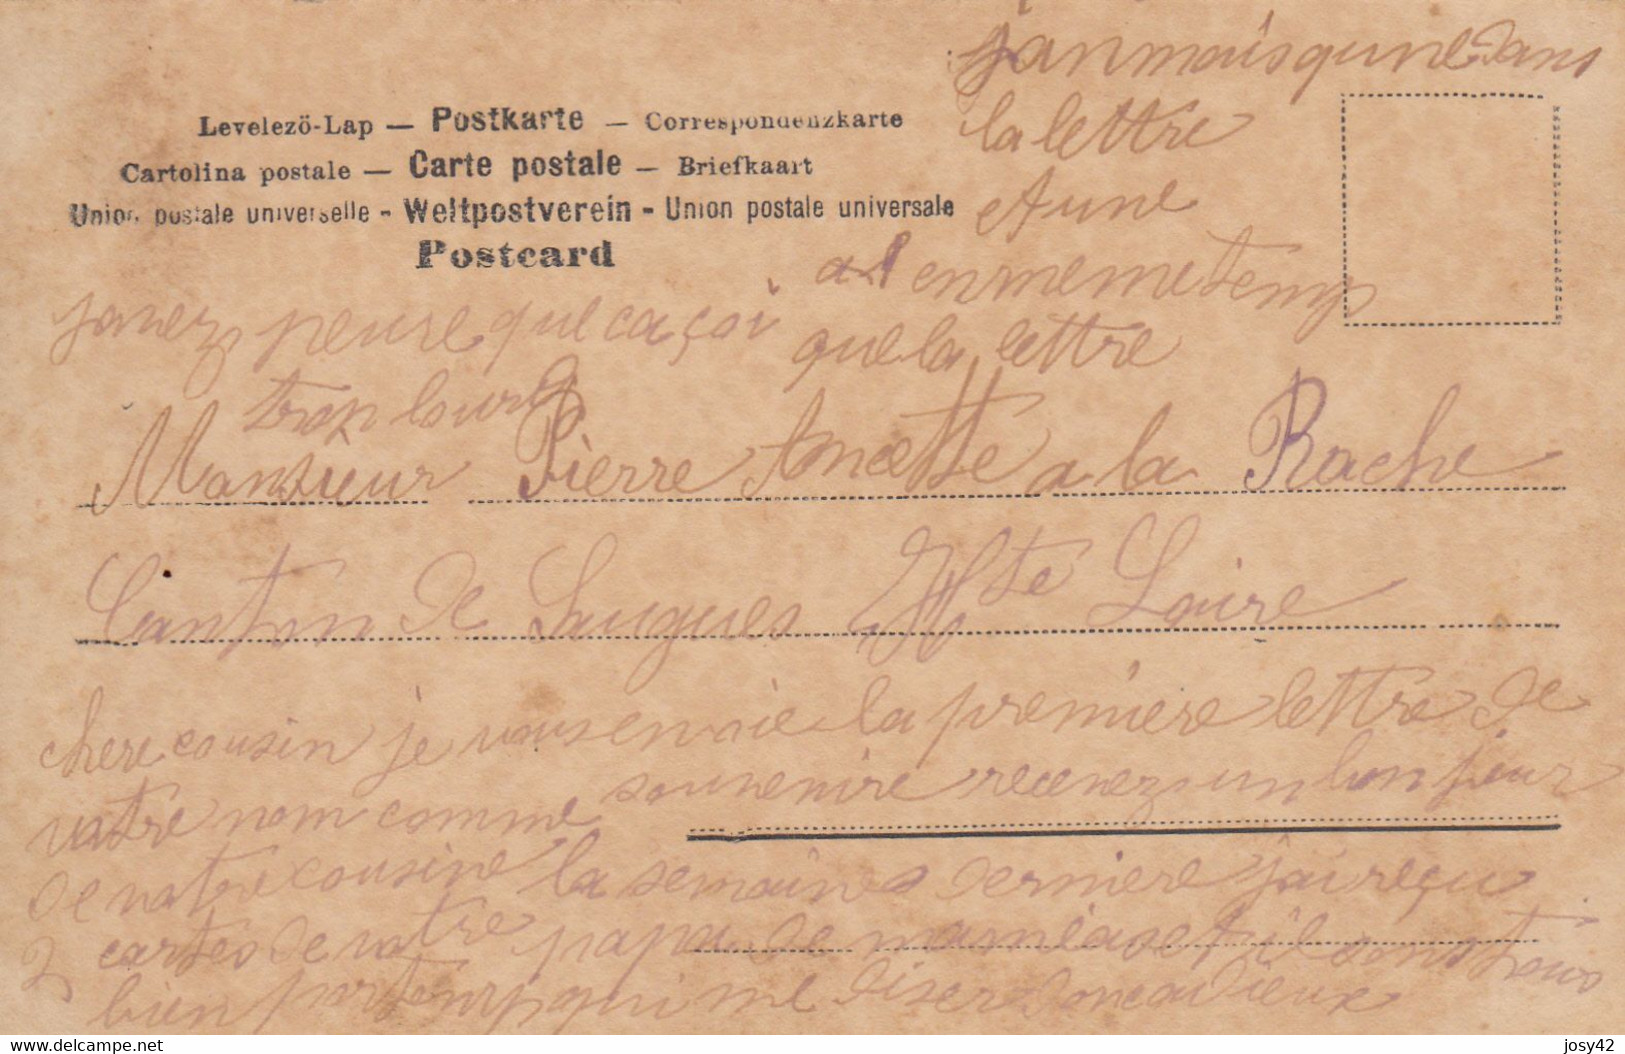 Levelezö-Lap — Postkarte — Correspondenzkarte
Cartolina postale — Carte postale — Briefkaart
Union postale universelle - Weltpostverein - Union postale universale
Postcard
dans
la lettre
et une
en meme temp
que la lettre
peure que ca çoi
trop lourd
Monsieur Pierre a la Roche
Canton de Saugues Hte Loire
chere cousin je vous envoie la premiere lettre de
votre nom comme souvenire recevez un bonjour
de votre cousine la semaine derniere j'ai reçu
2 cartes de votre papa de et il sont tous
bien portemp qui me diser donc adieux
delcampe.net
josy42